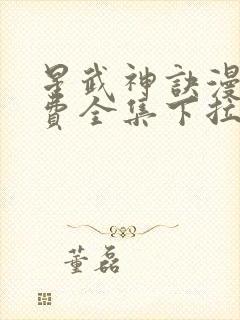 星武神訣漫
費全集下拉
董磊